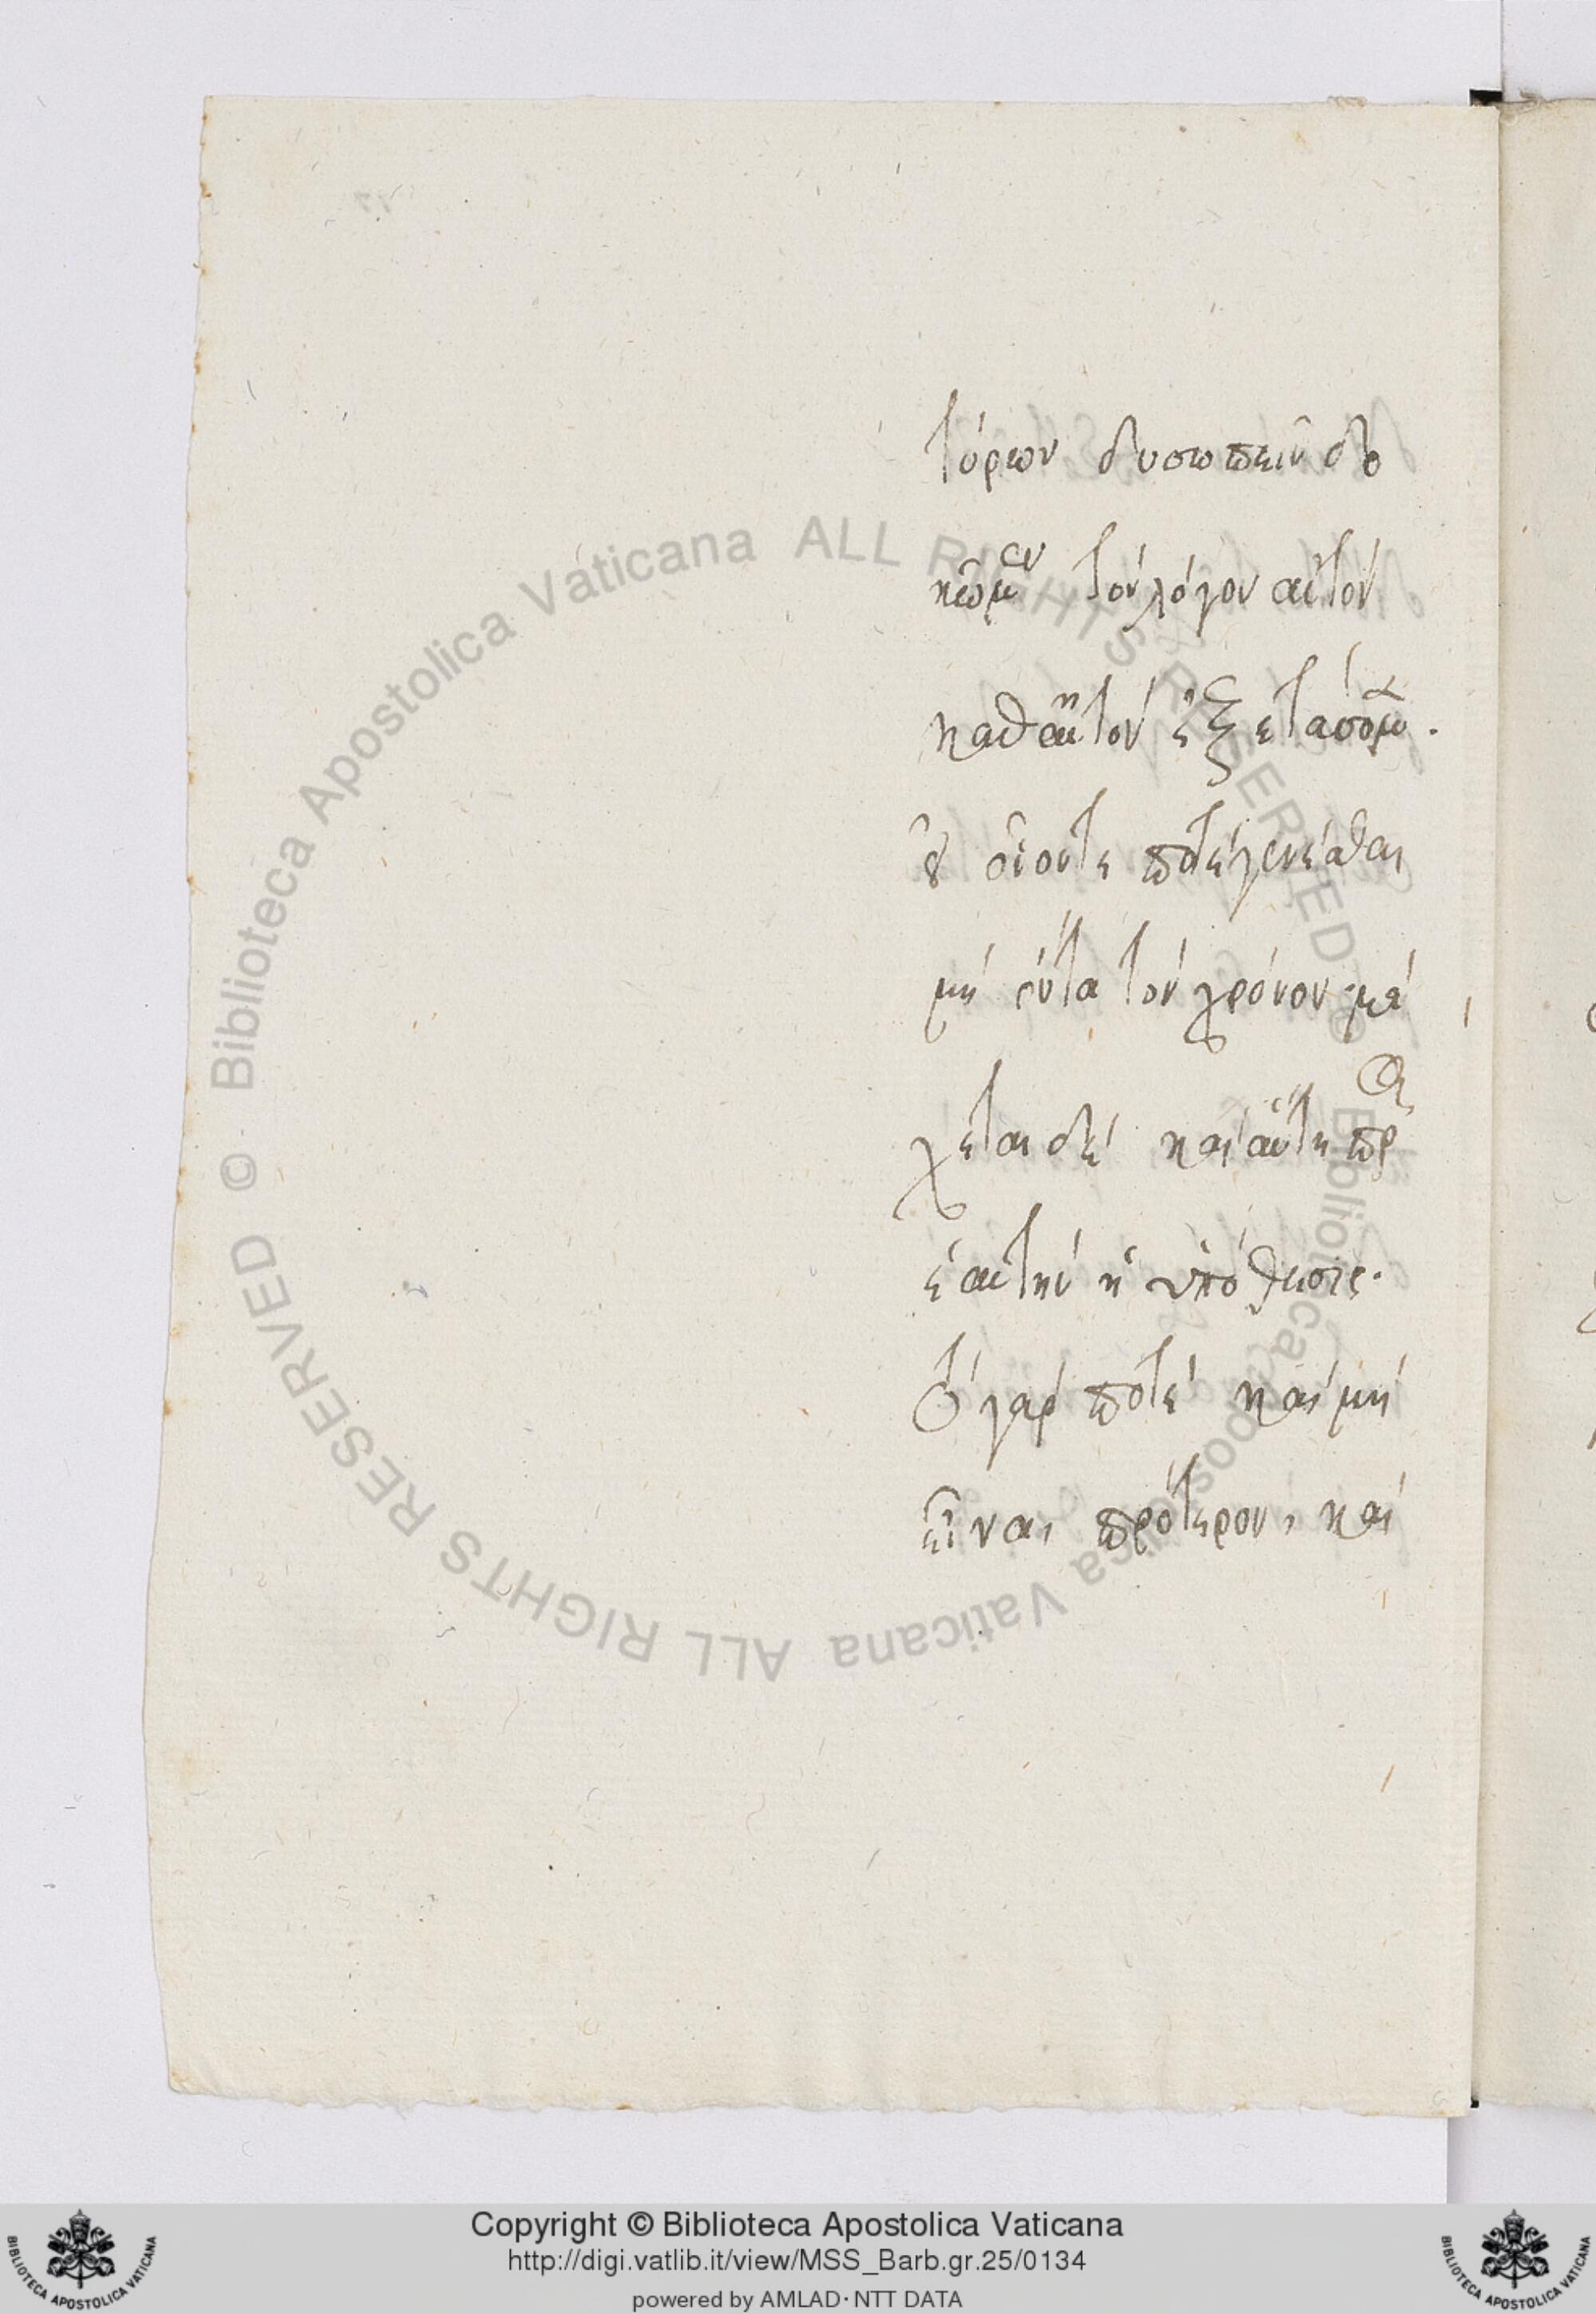 τύρων δυσωπεῖν δο
κῶμεν τὸν λόγον αὐτὸν
καθ' αὑτὸν ἐξετάσομεν.
οὐ οἷόντε ποτὲ γενέσθαι
μὴ ὄντα τὸν χρόνον· μά
χεται δὲ καὶ αὐτὴ πρὸς
ἑαυτὴν ἡ ὑπόθεσις.
τὸ γάρ ποτε καὶ μὴ
εἶναι πρότερον, καὶ
© Biblioteca Apostolica Vaticana ALL RIGHTS RESERVED
© Biblioteca Apostolica Vaticana ALL RIGHTS RESERVED
Copyright © Biblioteca Apostolica Vaticana
http://digi.vatlib.it/view/MSS_Barb.gr.25/0134
powered by AMLAD·NTT DATA
BIBLIOTECA APOSTOLICA VATICANA
BIBLIOTECA APOSTOLICA VATICANA